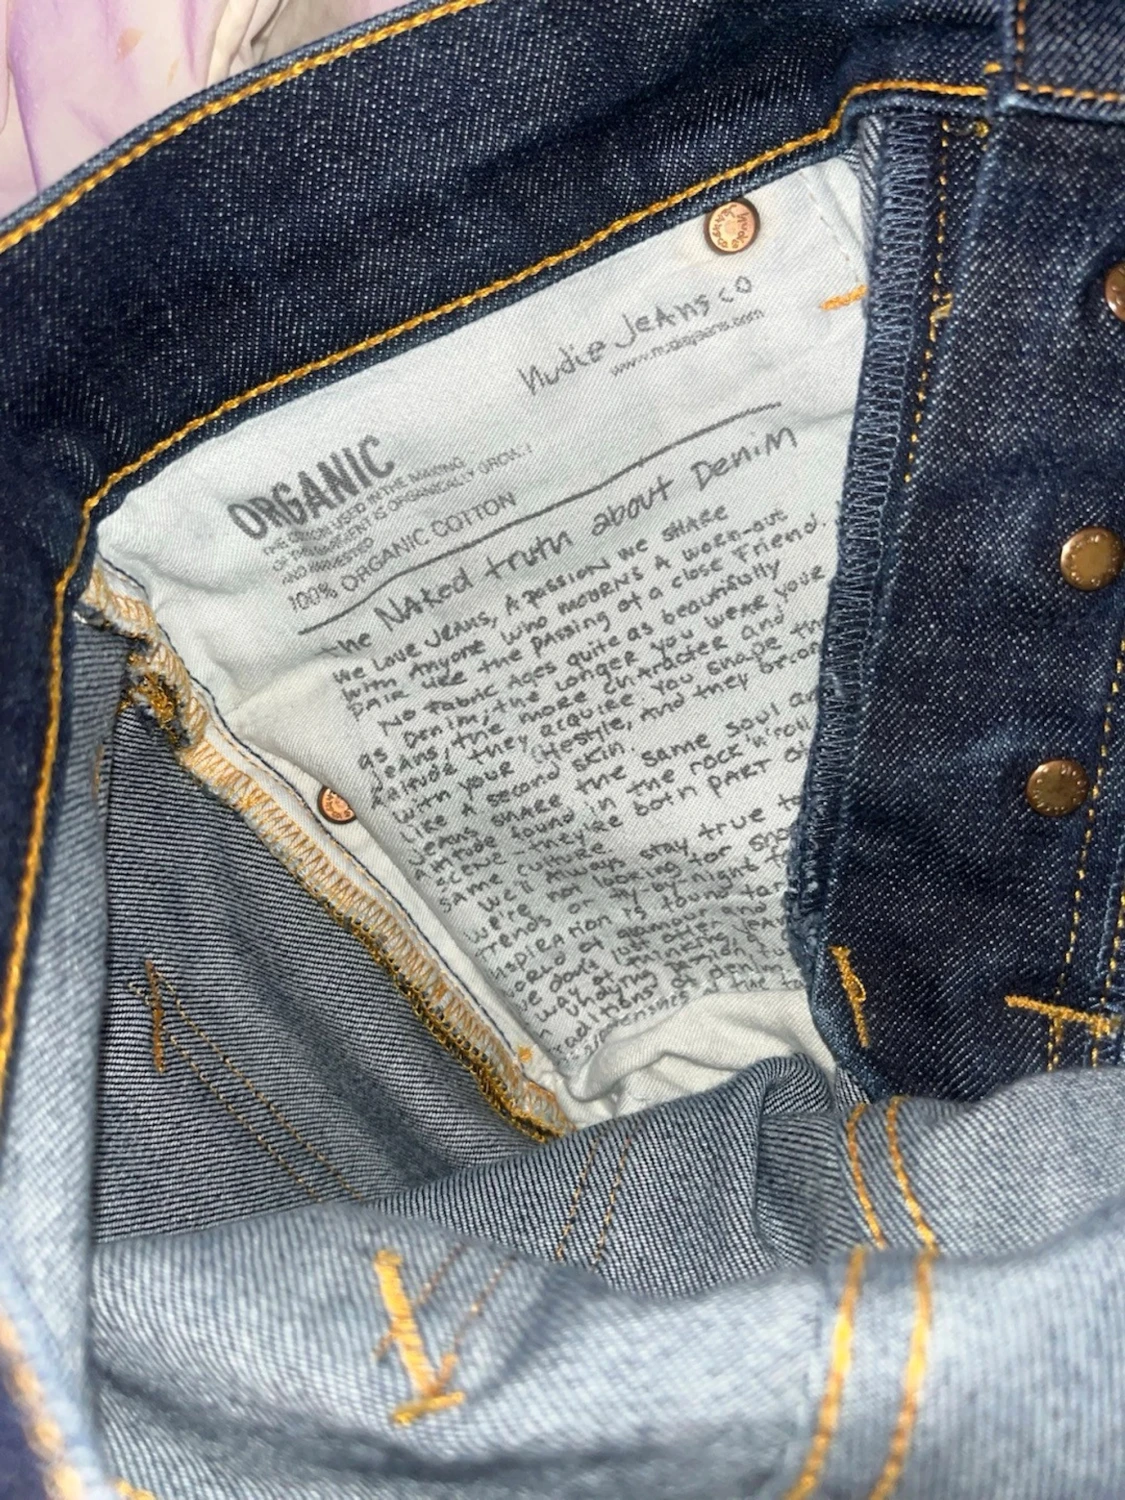 Nudie Jeans co
www.nudiejeans.com
ORGANIC
THE COTTON USED IN THE MAKING
OF THIS GARMENT IS ORGANICALLY GROWN
AND HARVESTED
100% ORGANIC COTTON
the NAKed truth about Denim
We Love Jeans, A passion we share
with Anyone who mourns A worn-out
pair like the passing of a close friend.
No fabric Ages quite as beautifully
as Denim; the longer you wear your
Jeans, the more character and
Attitude they acquire. You shape th
with your lifestyle, And they becom
like A second skin.
Jeans share the same soul an
Attitude found in the rock'n'roll
scene - they're both part o
same culture.
We'll Always stay true to
we're not looking for
trends or fly-by-night
inspiration is found far
world of glamour and
we don't just offer
way of thinking,
n undying passion
raditions of denim